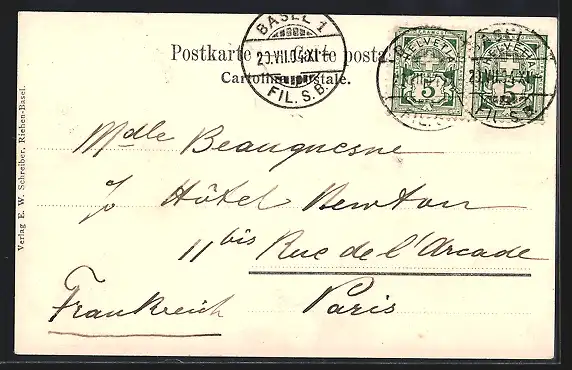 Postkarte — Carte postale.
Cartolina postale.
BASEL 1
20.VII.04.XI-
FIL. S.B.
HELVETIA
5
HELVETIA
5
Mdlle Beauquesne
c/o Hôtel Newton
11 bis Rue de l'Arcade
Paris
Frankreich
Verlag E. W. Schreiber, Riehen-Basel.